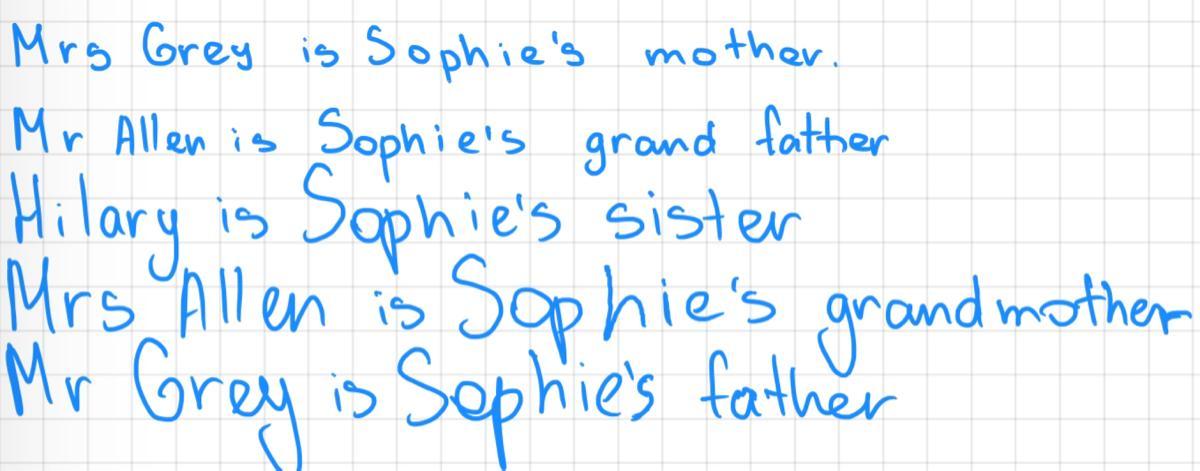 Mrs Grey is Sophie's mother.
Mr Allen is Sophie's grand father
Hilary is Sophie's sister
Mrs Allen is Sophie's grandmother
Mr Grey is Sophie's father